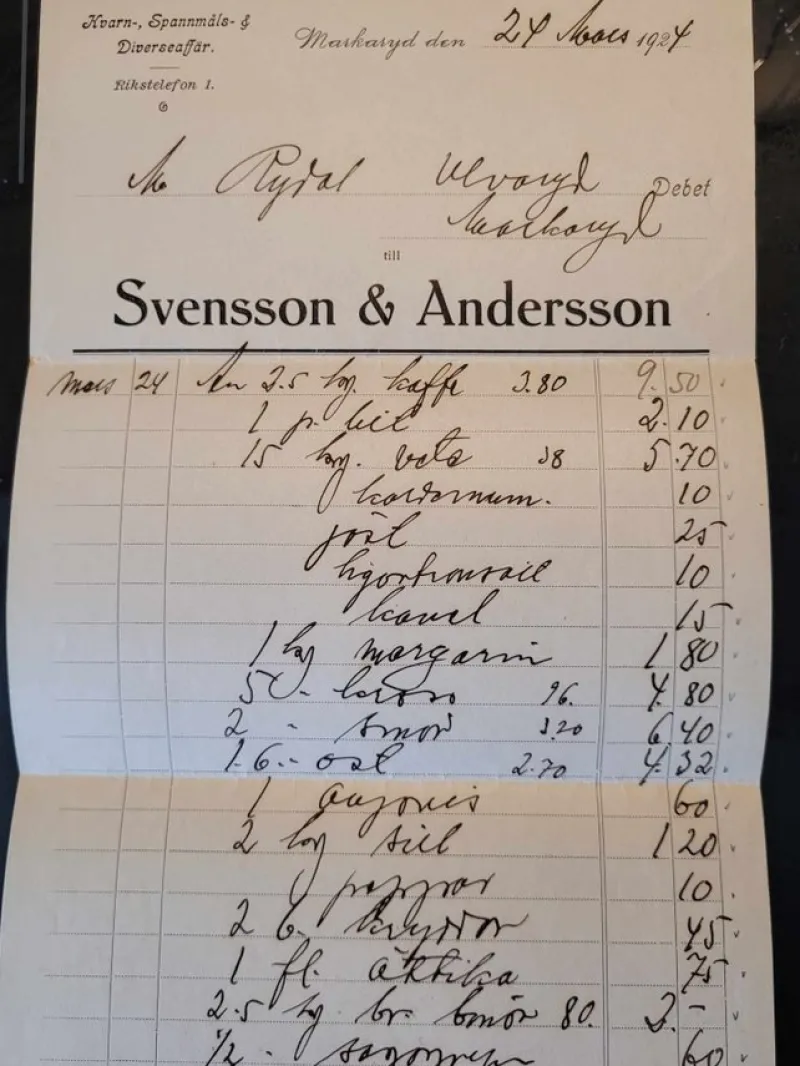 Kvarn-, Spannmåls- &
Diverseaffär.
Rikstelefon 1.
Markaryd den 24 Mars 1924
M Rydal Ulvaryd Debet
Markaryd
till
Svensson & Andersson
mars 24 An 2.5 kg. kaffe 3.80 9.50
1 p. 2.10
15 kg. vete 38 5.70
kardemum. 10
jäst 25
hjorthornsalt 10
kanel 15
1 kg margarin 1 80
5 - 96. 4.80
2 - smör 3.20 6.40
1.6 - ost 2.70 4.32
1 anjovis 60
2 kg sill 1 20
peppar 10
2 b. kryddor 45
1 fl. ättika 75
2.5 kg br. 80. 2.-
1/2 - sagogryn 60